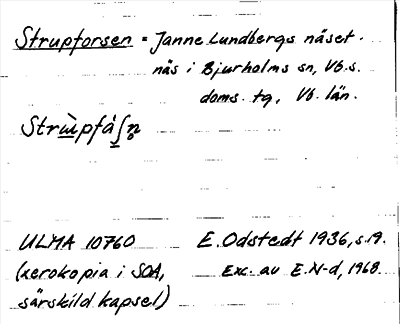 Strupforsen = Janne Lundbergs näset.
näs i Bjurholms sn, Vb.s.
doms. tg, Vb. län.
Strù̱pfá̱ʃn̥
ULMA 10760 E. Odstedt 1936, s.19.
(xerokopia i SOA, Exc. av E. N-d, 1968.
särskild kapsel)